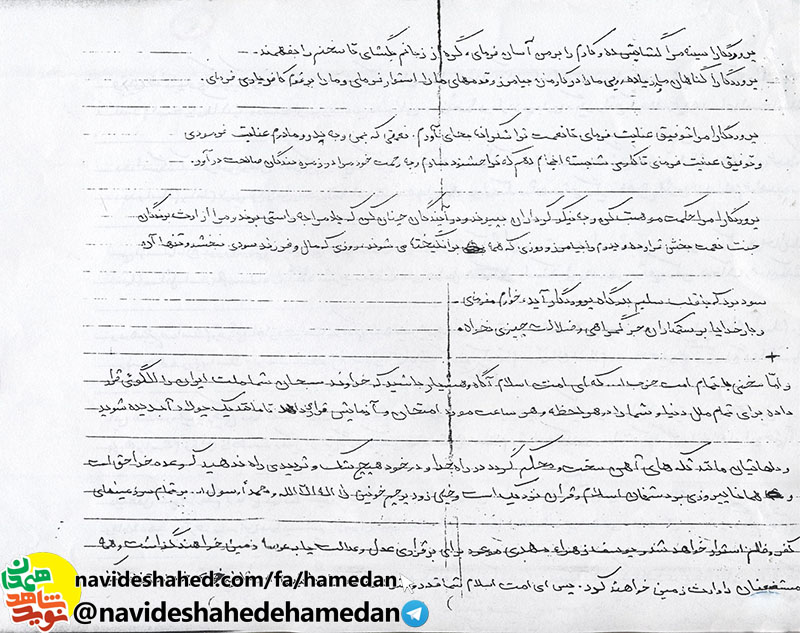 پروردگارا سینه مرا گشایش ده و کارم را بر من آسان فرمای، گره از زبانم بگشای تا سخنم را بفهمند.
پروردگارا گناهان و زیاده‌روی ما را در کارمان بیامرز و قدمهای ما را استوار فرمای و ما را بر قوم کافر یاری فرمای.
پروردگارا مرا توفیق عنایت فرمای تا نعمت ترا شکرانه بجای آورم. نعمتی که بمن و به پدر و مادرم عنایت فرمودی
و توفیق عنایت فرمای تا کاری شایسته انجام دهم که ترا خشنود سازم و به رحمت خود مرا در زمره بندگان صالحت در آور.
پروردگارا مرا حکمت موهبت کن و به نیکو کرداران بپیوند و در آیندگان چنان کن که یاد مرا به راستی برند و مرا از ارث برندگان
جنت نعمت بخش قرار ده و پدرم را بیامرز و روزی که همه برانگیخته می شوند، روزی که مال و فرزند سودی نبخشد و تنها آن
سود برد که با قلب سلیم بدرگاه پروردگار آید، خوارم مفرمای.
و بار خدایا بر ستمکاران جز گمراهی و ضلالت چیزی مخواه.
و امّا سخنی با تمام امت حزب ا... که ای امت اسلام آگاه و هشیار باشید که خداوند سبحان شما ملت ایران را الگوئی قرار
داده برای تمام ملل دنیا و شما را در هر لحظه و هر ساعت مورد امتحان و آزمایش قرار میدهد تا مانند یک پولاد آبدیده شوید
و دلهایتان مانند تکه های آهن سخت و محکم گردد در راه خدا و در خود هیچ شک و تردیدی راه ندهید که وعده خدا حق است
و همانا پیروزی بر دشمنان اسلام و قرآن نزدیک است و خیلی زود پرچم خونین لا اله الّا اللّه و محمداً رسول ا... بر تمام سرزمینهای
کفر و ظلم استوار خواهد شد و یوسف زهراء مهدی موعود برای برقراری عدل و عدالت پا به عرصه زمین خواهند گذاشت و همه
مستضعفان را وارث زمین خواهند کرد. پس ای امت اسلام شما
navideshahed.com/fa/hamedan
@navideshahedehamedan
نوید شاهد همدان